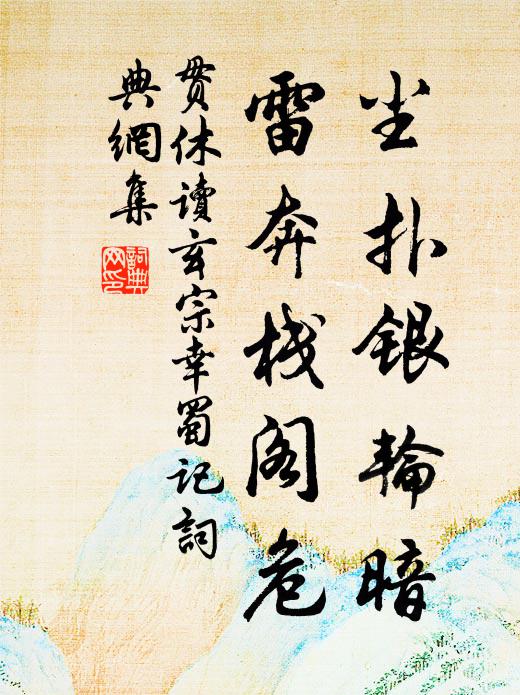 尘扑银轮暗
雷奔栈阁危
贯休读玄宗幸蜀记词
典网集
词典网印